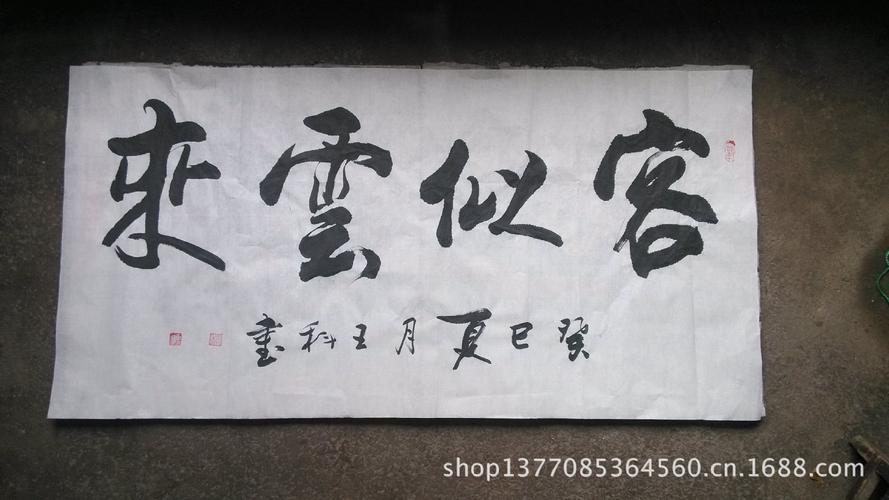 客似雲來
癸巳夏月王科書
shop1377085364560.cn.1688.com